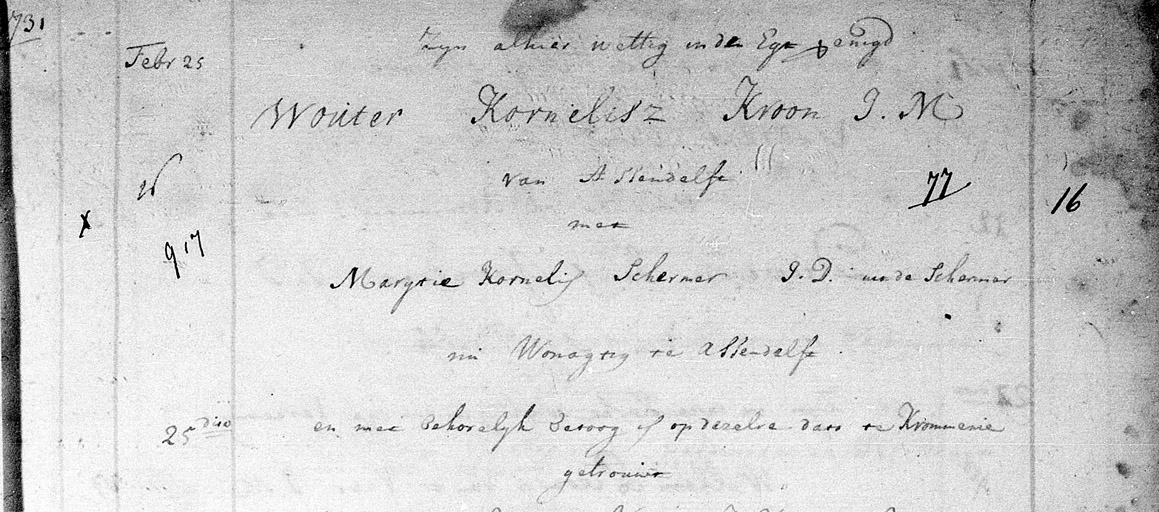 1731
Febr 25
Zyn alhier wettig inden Egt vereenigd
Wouter Kornelisz Kroon J. M
van Assendelft
77
16
met
917
Marytie Kornelis Schermer J. D. uit de Schermer
nu Wonagtig te Assendelft
25 dito
en met behoorlyk betoog is op dezelve dato te Krommenie
getrouwt